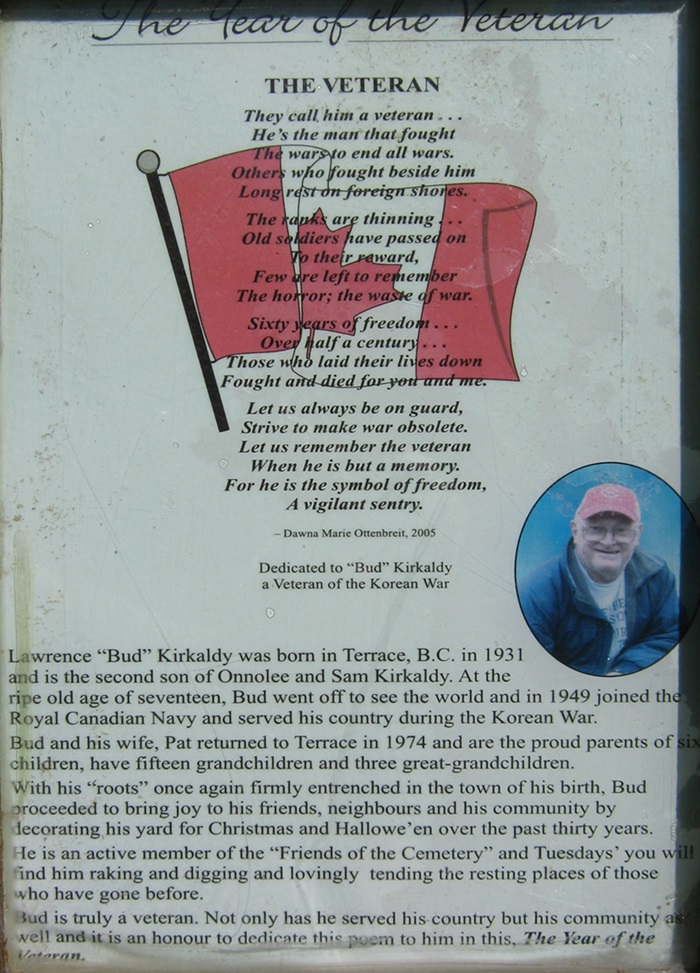 The Year of the Veteran
THE VETERAN
They call him a veteran . . .
He's the man that fought
The wars to end all wars.
Others who fought beside him
Long rest on foreign shores.
The ranks are thinning . . .
Old soldiers have passed on
To their reward,
Few are left to remember
The horror; the waste of war.
Sixty years of freedom . . .
Over half a century . . .
Those who laid their lives down
Fought and died for you and me.
Let us always be on guard,
Strive to make war obsolete.
Let us remember the veteran
When he is but a memory.
For he is the symbol of freedom,
A vigilant sentry.
– Dawna Marie Ottenbreit, 2005
Dedicated to “Bud” Kirkaldy
a Veteran of the Korean War
Lawrence “Bud” Kirkaldy was born in Terrace, B.C. in 1931
and is the second son of Onnolee and Sam Kirkaldy. At the
ripe old age of seventeen, Bud went off to see the world and in 1949 joined the
Royal Canadian Navy and served his country during the Korean War.
Bud and his wife, Pat returned to Terrace in 1974 and are the proud parents of six
children, have fifteen grandchildren and three great-grandchildren.
With his “roots” once again firmly entrenched in the town of his birth, Bud
proceeded to bring joy to his friends, neighbours and his community by
decorating his yard for Christmas and Hallowe'en over the past thirty years.
He is an active member of the “Friends of the Cemetery” and Tuesdays' you will
find him raking and digging and lovingly tending the resting places of those
who have gone before.
Bud is truly a veteran. Not only has he served his country but his community as
well and it is an honour to dedicate this poem to him in this, The Year of the
Veteran.